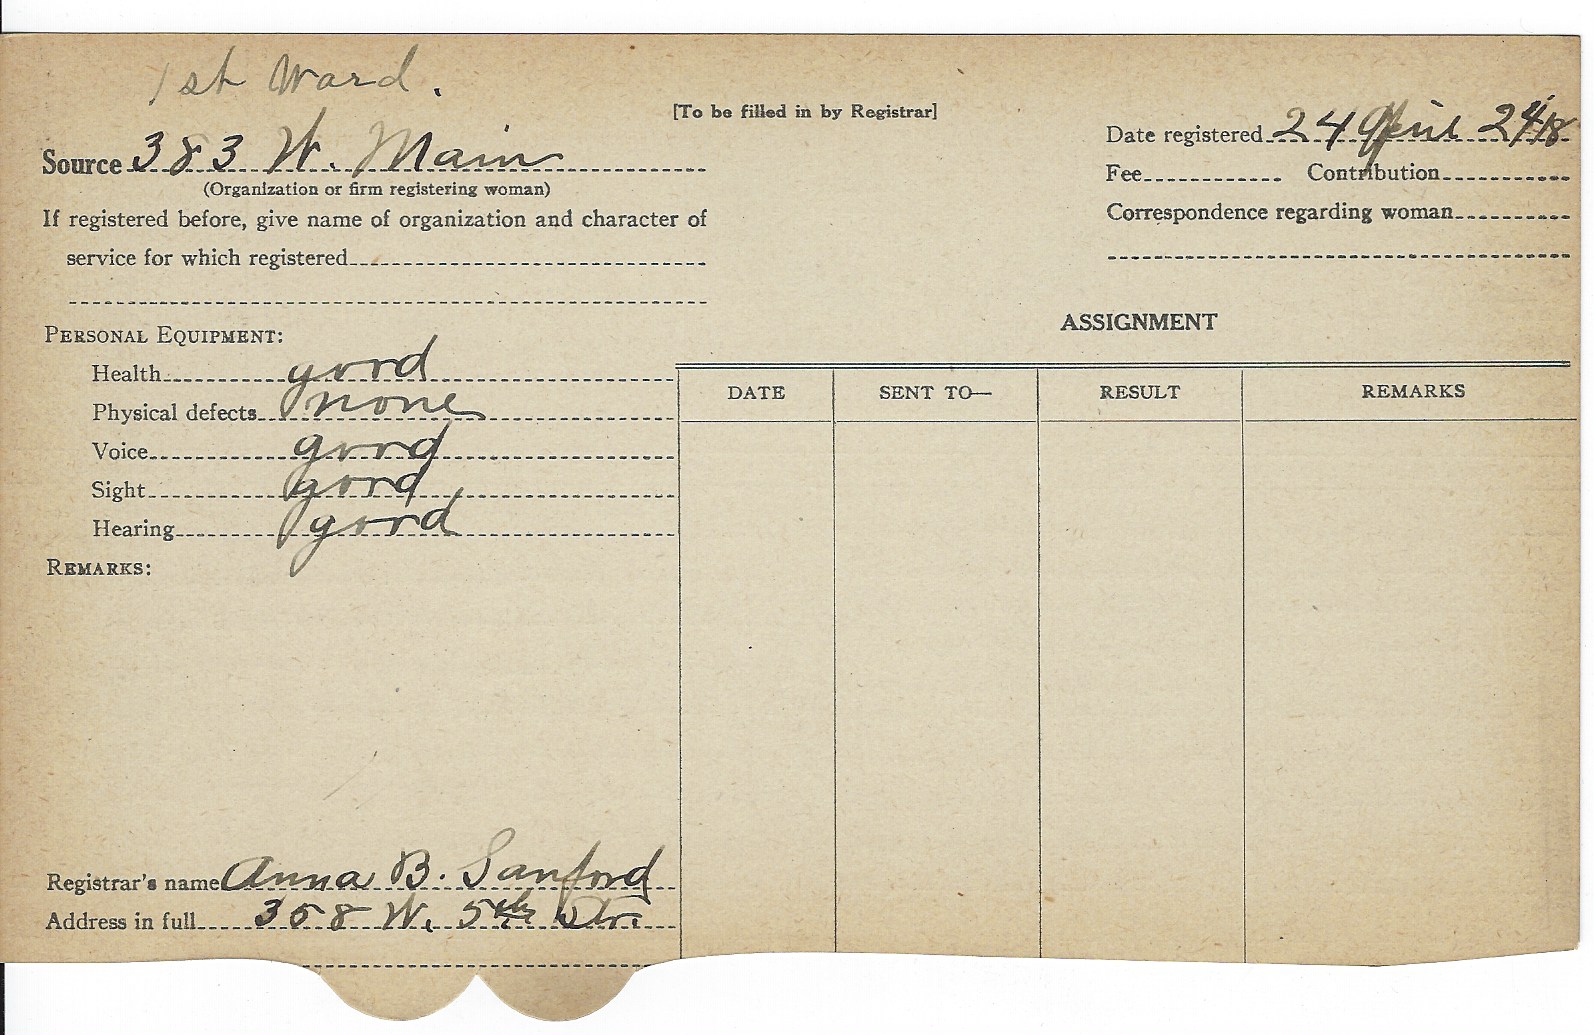 1st Ward.
[To be filled in by Registrar]
Source 383 W. Main
(Organization or firm registering woman)
If registered before, give name of organization and character of
service for which registered
Date registered 24 April 24/18
Fee Contribution
Correspondence regarding woman
PERSONAL EQUIPMENT:
Health good
Physical defects none
Voice good
Sight good
Hearing good
REMARKS:
ASSIGNMENT
DATE SENT TO— RESULT REMARKS
Registrar's name Anna B. Sanford
Address in full 358 W. 5th Str.